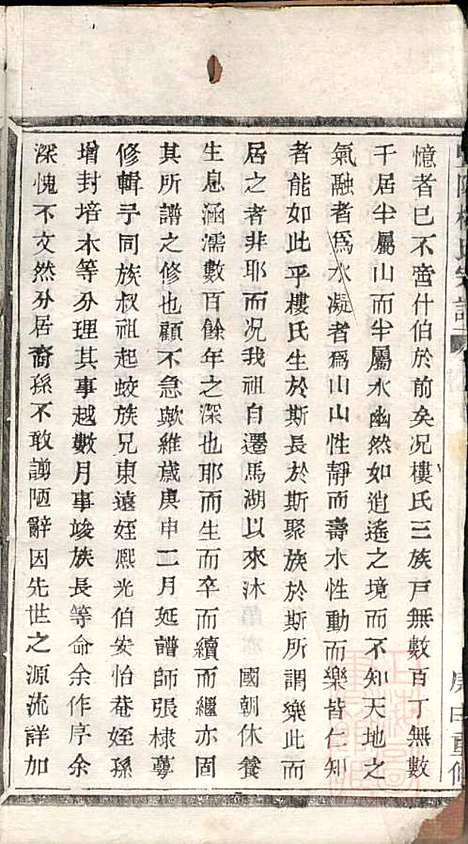 憶者已不啻什伯於前矣况樓氏三族戶無數百丁無數
千居半屬山而半屬水幽然如逍遙之境而不知天地之
氣融者爲水凝者爲山山性靜而壽水性動而樂皆仁知
者能如此乎樓氏生於斯長於斯聚族於斯所謂樂此而
居之者非耶而况我祖自遷馬湖以來沐　國朝休養
生息涵濡數百餘年之深也耶而生而卒而續而繼亦固
其所譜之修也顧不急歟維歲庚申二月延譜師張棣蕚
修輯予同族叔祖起蛟族兄東遠姪熙光伯安怡菴姪孫
增封培木等分理其事越數月事竣族長等命余作序余
深愧不文然分居裔孫不敢謭陋辭因先世之源流詳加